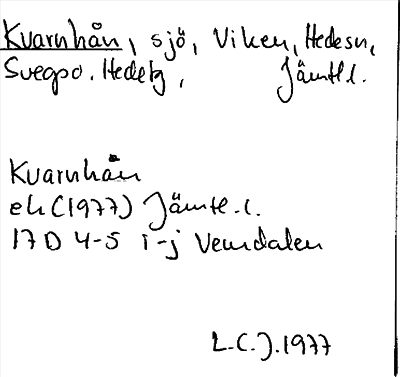 Kvarnhån, sjö, Viken, Hedesn,
Svegpo. Hedetg, Jämtl l.
Kvarnhån
ek (1977) Jämtl. l.
17 D 4-5 i-j Vemdalen
L.C.J. 1977